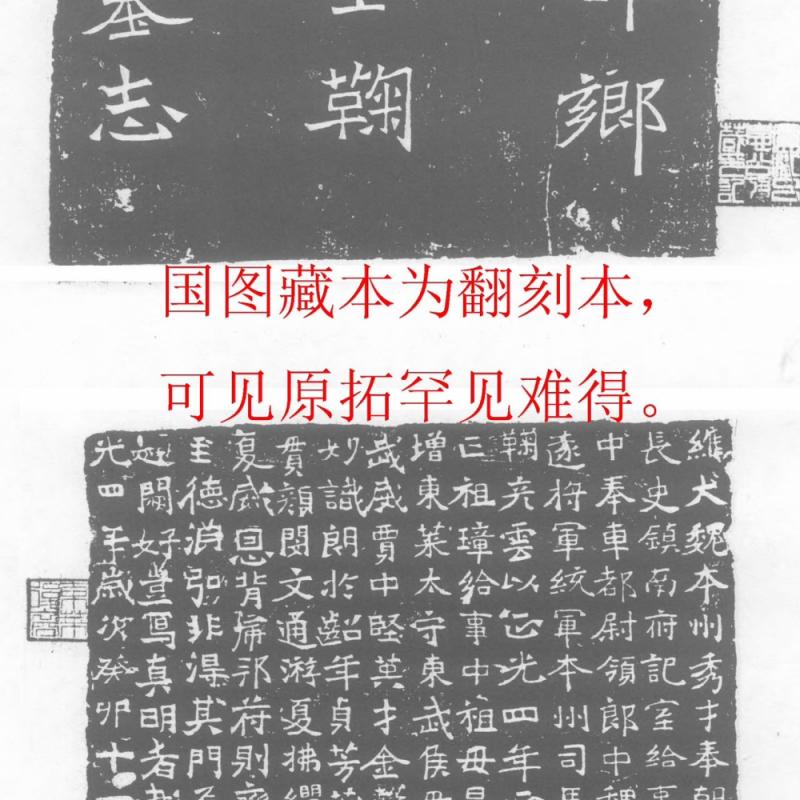 鄉
鞠
墓志
国图藏本为翻刻本，
可见原拓罕见难得。
維大魏本州秀才奉朝
長史鎮南府記室給事
中奉車都尉領郎中
遠将軍統軍本州司馬
鞠彦雲以正光四年正
祖璋給事中祖母
增東萊太守東武侯母
武威賈中堅英才金
妙識朗於齠年貞芳
貫顏閔文通游夏拂纓
夏威恩背虜邪苻則齊
至德弘非淂其門
闕好焉真明者
光四年歲次癸卯十一